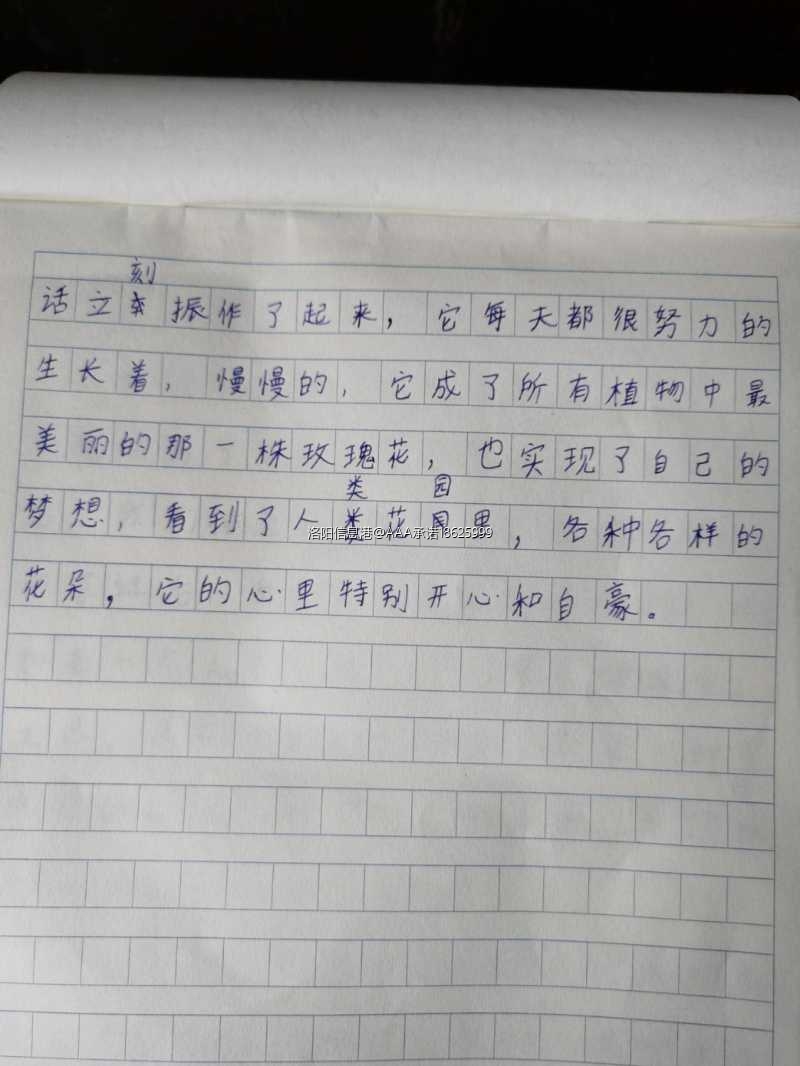 刻
话立振作了起来，它每天都很努力的
生长着，慢慢的，它成了所有植物中最
美丽的那一株玫瑰花，也实现了自己的
类 园
梦想，看到了人类花园里，各种各样的
洛阳信息港@AAA承诺18625999
花朵，它的心里特别开心和自豪。